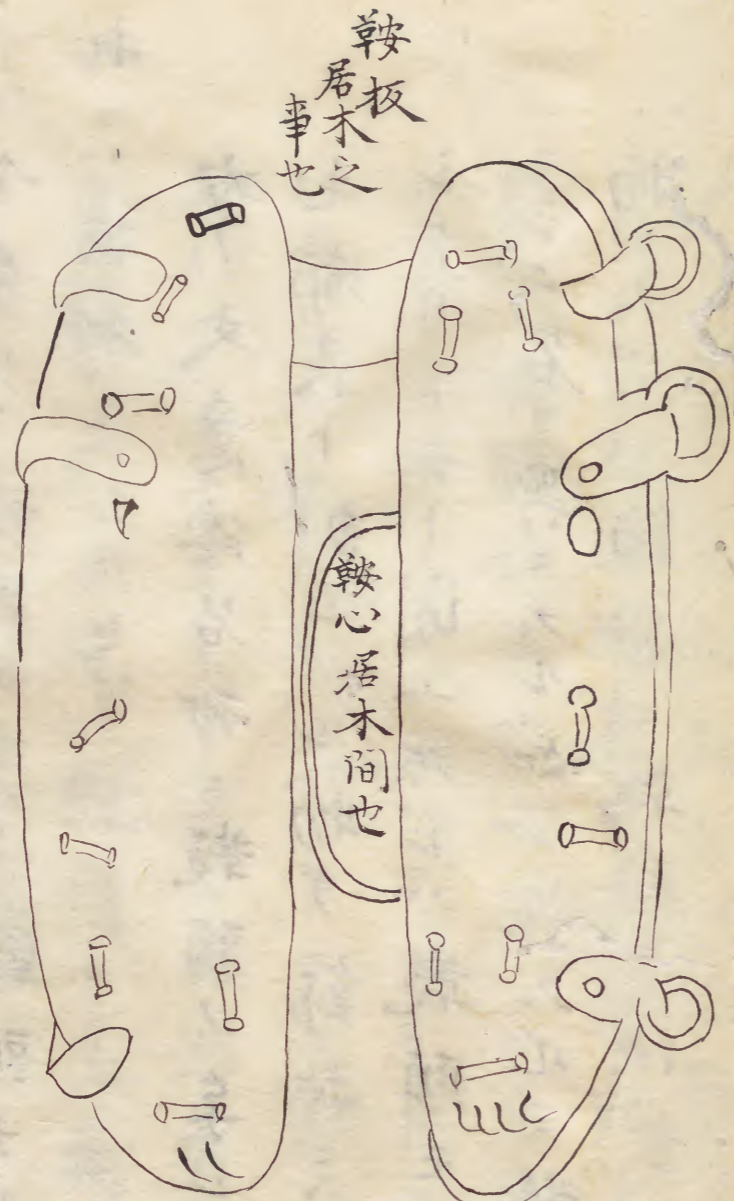 鞍板
居木之
事也
鞍心居木間也